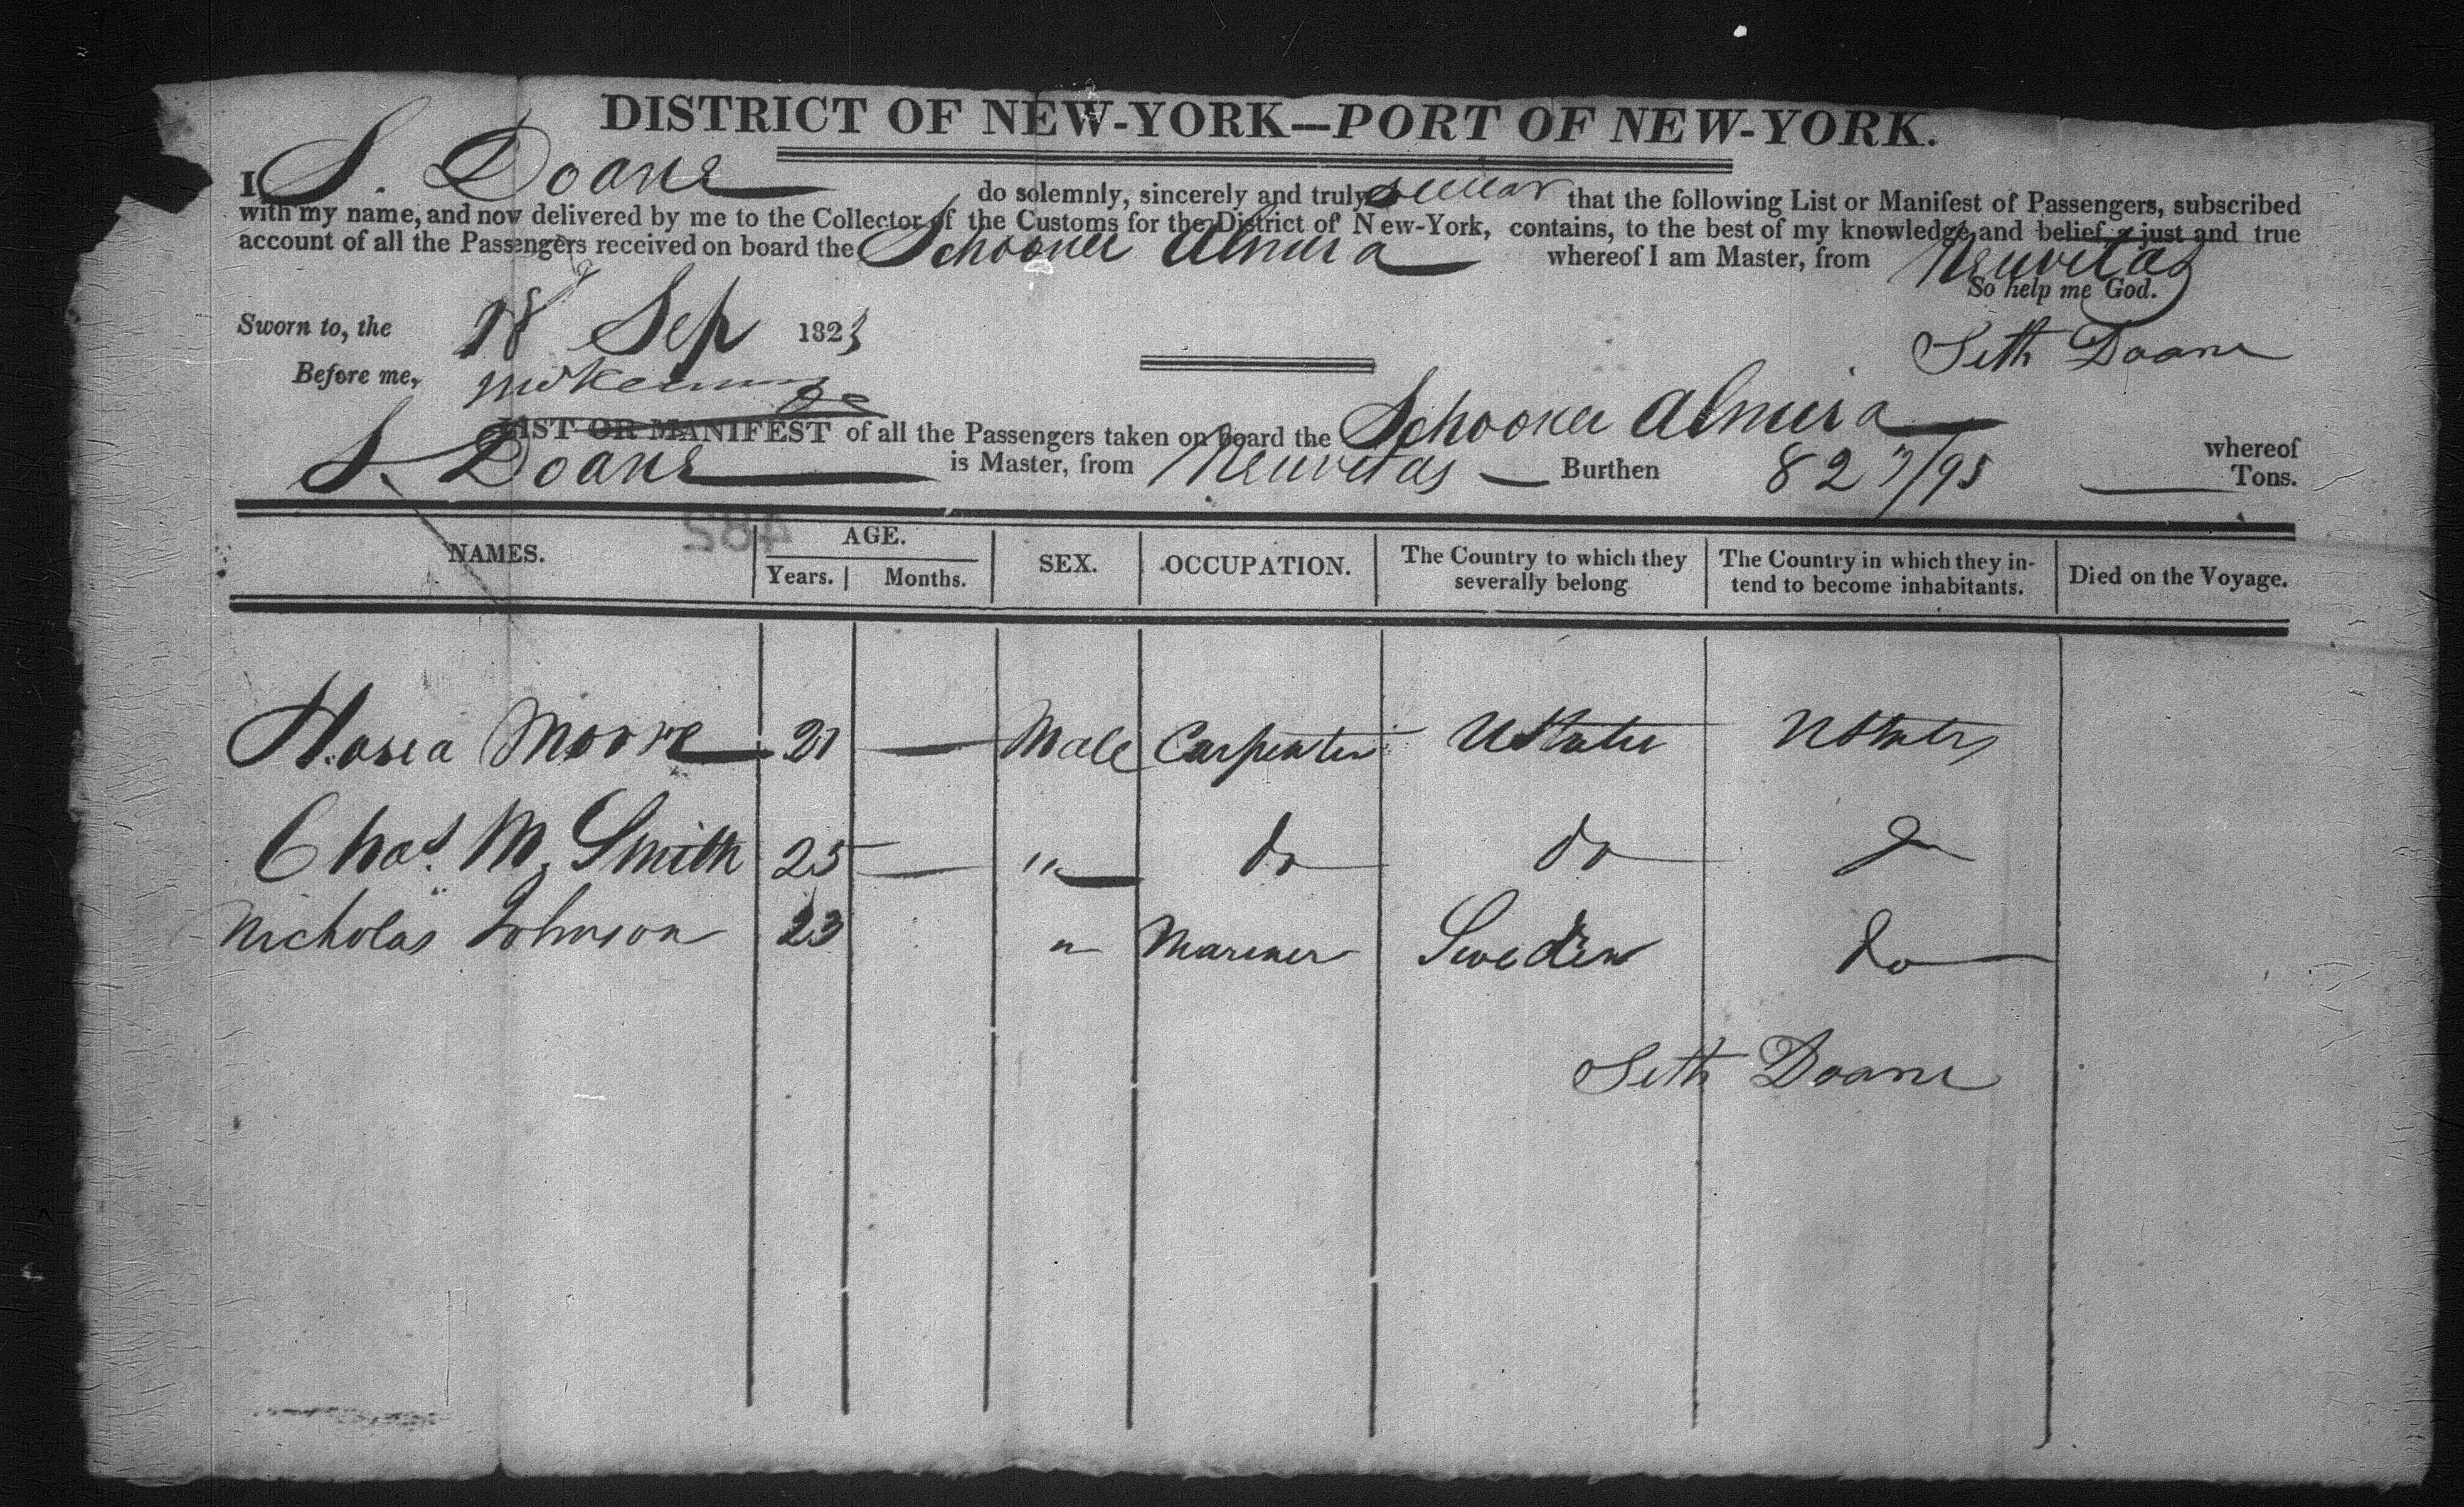 DISTRICT OF NEW-YORK—PORT OF NEW-YORK.
I S. Doane do solemnly, sincerely and truly swear that the following List or Manifest of Passengers, subscribed
with my name, and now delivered by me to the Collector of the Customs for the District of New-York, contains, to the best of my knowledge and belief, a just and true
account of all the Passengers received on board the Schooner Almira whereof I am Master, from Neuvitas
So help me God.
Sworn to, the 18 Sep 1823 Seth Doane
Before me,
LIST OR MANIFEST of all the Passengers taken on board the Schooner Almira whereof
S. Doane is Master, from Neuvitas Burthen 82 7/95 Tons.
482
NAMES. AGE. Years. Months. SEX. OCCUPATION. The Country to which they severally belong The Country in which they intend to become inhabitants. Died on the Voyage.
Hosea Moore 21 — Male Carpenter UStates UStates
Chas. M. Smith 25 — " do do do
Nicholas Johnson 23 " Mariner Sweden do
Seth Doane